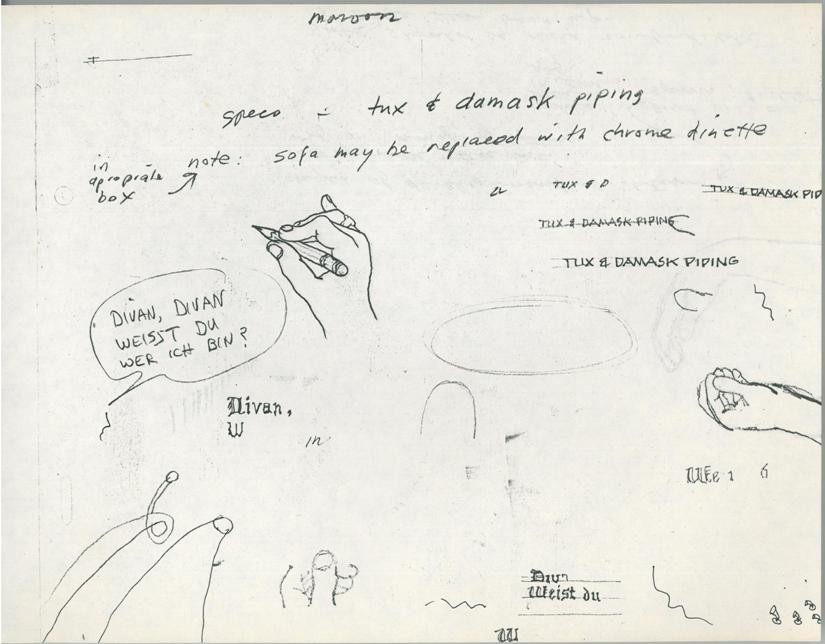 maroon
specs - tux & damask piping
note: sofa may be replaced with chrome dinette
in
apropriate
box
TUX & D
TUX & DAMASK PIP
TUX & DAMASK PIPING
TUX & DAMASK PIPING
DIVAN, DIVAN
WEISST DU
WER ICH BIN?
Divan,
W
in
Divn
Weist du
W